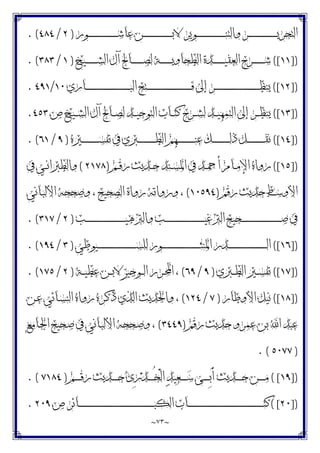 التحرير والتنوير لابن عاشور ( ٢ / ٤٨٤ ) .
([١١]) شرح العقيدة الطحاوية لصالح آل الشيخ ( ١ / ٣٨٣ ) .
([١٢]) ينظر إلى فتح الباري ٤٩١/١٠
([١٣]) ينظر إلى التمهيد لشرح كتاب التوحيد لصالح آل الشيخ ص ٤٥٣.
([١٤]) نقل ذلك عنهم الطبري في تفسيره ( ٩ / ٦١ ) .
([١٥]) رواه الإمام أحمد في المسند حديث رقم( ٢١٧٨ ) والطبراني في
الأوسط حديث رقم( ١٠٥٩٤ ) ، ورواته رواة الصحيح ، وصححه الألباني
في صحيح الترغيب والترهيب ( ٢ / ٣١٧ ) .
([١٦]) الدر المنثور للسيوطي ( ٣ / ١٩٤ ) .
([١٧]) تفسير الطبري ( ٩ / ٦٩ ) ، المحرر الوجيز لابن عطية ( ٢ / ١٧٥ ) .
([١٨]) نيل الأوطار ( ٧ / ١٢٤ ) ، والحديث الذي ذكره رواه النسائي عن
عبد الله بن عمرو حديث رقم( ٣٤٤٩ ) ، وصححه الألباني في صحيح الجامع
( ٥٠٧٧ ) .
([١٩]) من حديث أبي سعيد الخدري حديث رقم( ٧١٨٤ ) .
([٢٠]) كتاب الكبائر ص ٢٠٩ .
~٧٣~